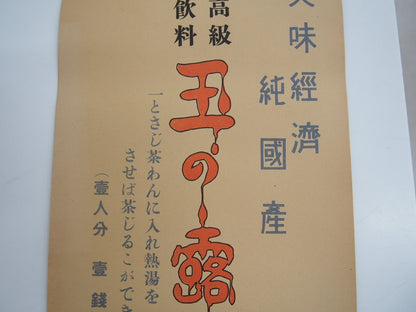 味經濟
純國產
高級
飲料
玉の露
一とさじ茶わんに入れ熱湯を
させば茶じるこができ
(壹人分 壹錢